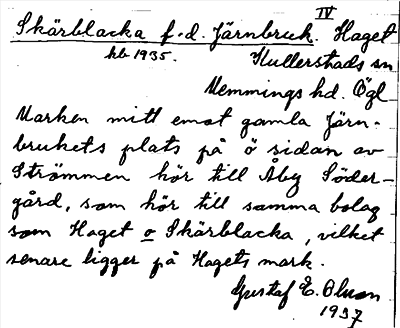 IV
Skärblacka f.d. Järnbruk. Haget
hb 1935. Kullerstads sn
Memmings hd. Ögl
Marken mitt emot gamla Järn-
brukets plats på ö sidan av
Strömmen hör till Åby Söder-
gård, som hör till samma bolag
som Haget o Skärblacka, vilket
senare ligger på Hagets mark.
Gustaf E. Olsson
1937